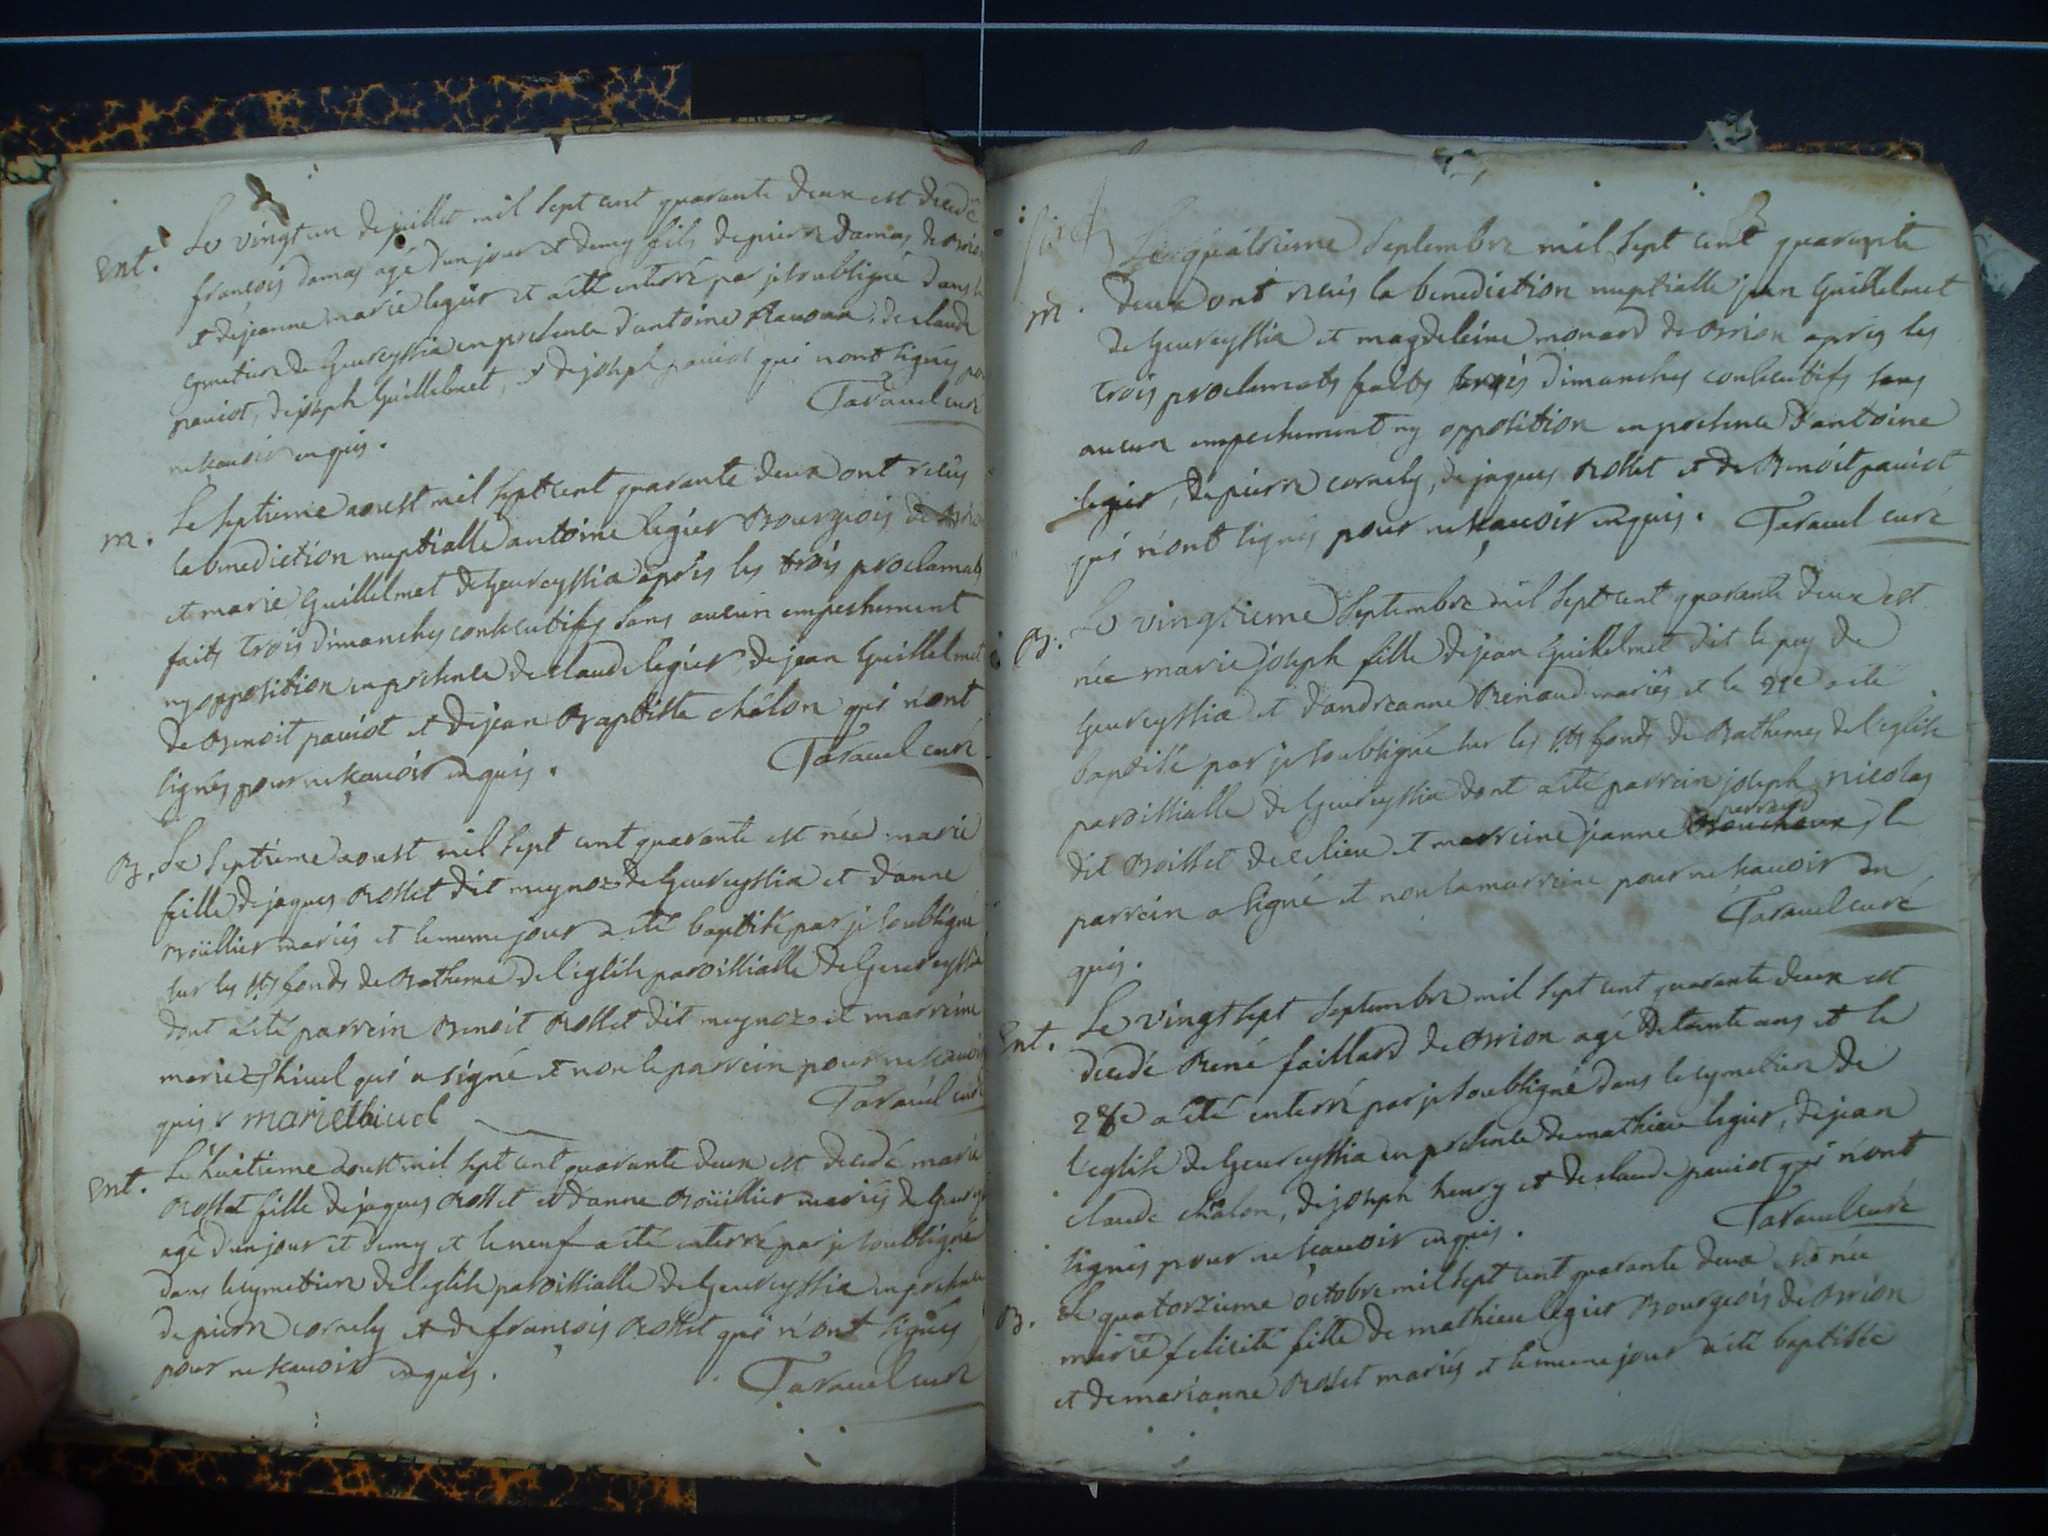 Ent. Le vingt un de juillet mil sept cent quarante deux est decedé
françois damas agé d'un jour et demy fils de pierre damas de Orrion
et de jeanne marie legier et a été enterré par je soubsigné dans le
cymetiere de Gevreyssia en presence d'antoine de claude
paviot, de joseph Guillelmet, et de joseph paviot qui n'ont signés pour
ne sçavoir enquis. Taravel curé
m. Le septieme aoust mil sept cent quarante deux ont reçus
la benediction nuptialle antoine legier Bourgeois de Orrion
et marie Guillelmet de Gevreyssia après les trois proclamats
faits trois dimanches consecutifs sans aucun empeschement
ny opposition en presence de claude legier de jean Guillelmet
de Benoit paviot et de jean Baptiste châlon qui n'ont
signés pour ne sçavoir enquis. Taravel curé
B. Le septieme aoust mil sept cent quarante est née marie
fille de jaques Rosset dit meynoz de Gevreyssia et d'anne
Roüillier mariés et le meme jour a été baptisé par je soubsigné
sur les sts fonds de Batheme de l'eglise paroissialle de Gevreyssia
dont a été parrein Benoit Rosset dit meynoz et marreine
marie Thievel qui a signé et non le parrein pour ne scavoir
quis marie thieuel Taravel curé
Ent. Le huitieme aoust mil sept cent quarante deux est decedé marie
Rosset fille de jaques Rosset et d'anne Roüillier mariés de Gevreyssia
agé d'un jour et demy et le neuf a été enterré par je soubsigné
dans le cymetiere de l'eglise paroissialle de Gevreyssia en presence
de pierre cornely et de françois Rosset qui n'ont signés
pour ne sçavoir enquis. Taravel curé
Le quatrieme septembre mil sept cent quarante
m. deux ont reçus la benediction nuptialle jean Guillelmet
de Gevreyssia et magdeleine monard de Orrion après les
trois proclamats faits trois dimanches consecutifs sans
aucun empeschement ny opposition en presence d'antoine
legier, de pierre cornely, de jaques Rosset et de Benoit paviot
qui n'ont signés pour ne sçavoir enquis. Taravel curé
B. Le vingtieme septembre mil sept cent quarante deux est
née marie joseph fille de jean Guillelmet dit le puy de
Gevreyssia et d'andreanne Renaud mariés et le 21e a été
baptisé par je soubsigné sur les sts fonds de Bathemes de l'eglise
paroissialle de Gevreyssia dont a été parrein joseph nicolas
dit Boisset de ce lieu et marreine jeanne perraud le
parrein a signé et non la marreine pour ne scavoir en
quis. Taravel curé
Ent. Le vingt sept septembre mil sept cent quarante deux est
decedé René faillard de Orrion agé de tente ans et le
28e a été enterré par je soubsigné dans le cymetiere de
l'eglise de Gevreyssia en presence de mathieu legier, de jean
claude châlon, de joseph henry et de claude paviot qui n'ont
signés pour ne sçavoir enquis. Taravel curé
B. Le quatorzieme octobre mil sept cent quarante deux est née
marie felicité fille de mathieu legier Bourgeois de Orrion
et de marianne Rosset mariés et le meme jour a été baptisée